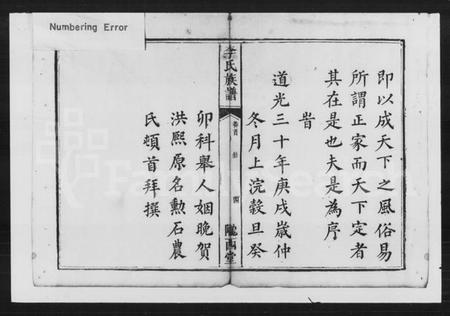 Numbering Error
即以成天下之風俗易
所謂正家而天下定者
其在是也夫是為序
旹
道光三十年庚戌歲仲
冬月上浣穀旦癸
李氏族譜
卷首
四
隴西堂
卯科舉人姻晚賀
洪熙原名勲石農
氏頓首拜撰